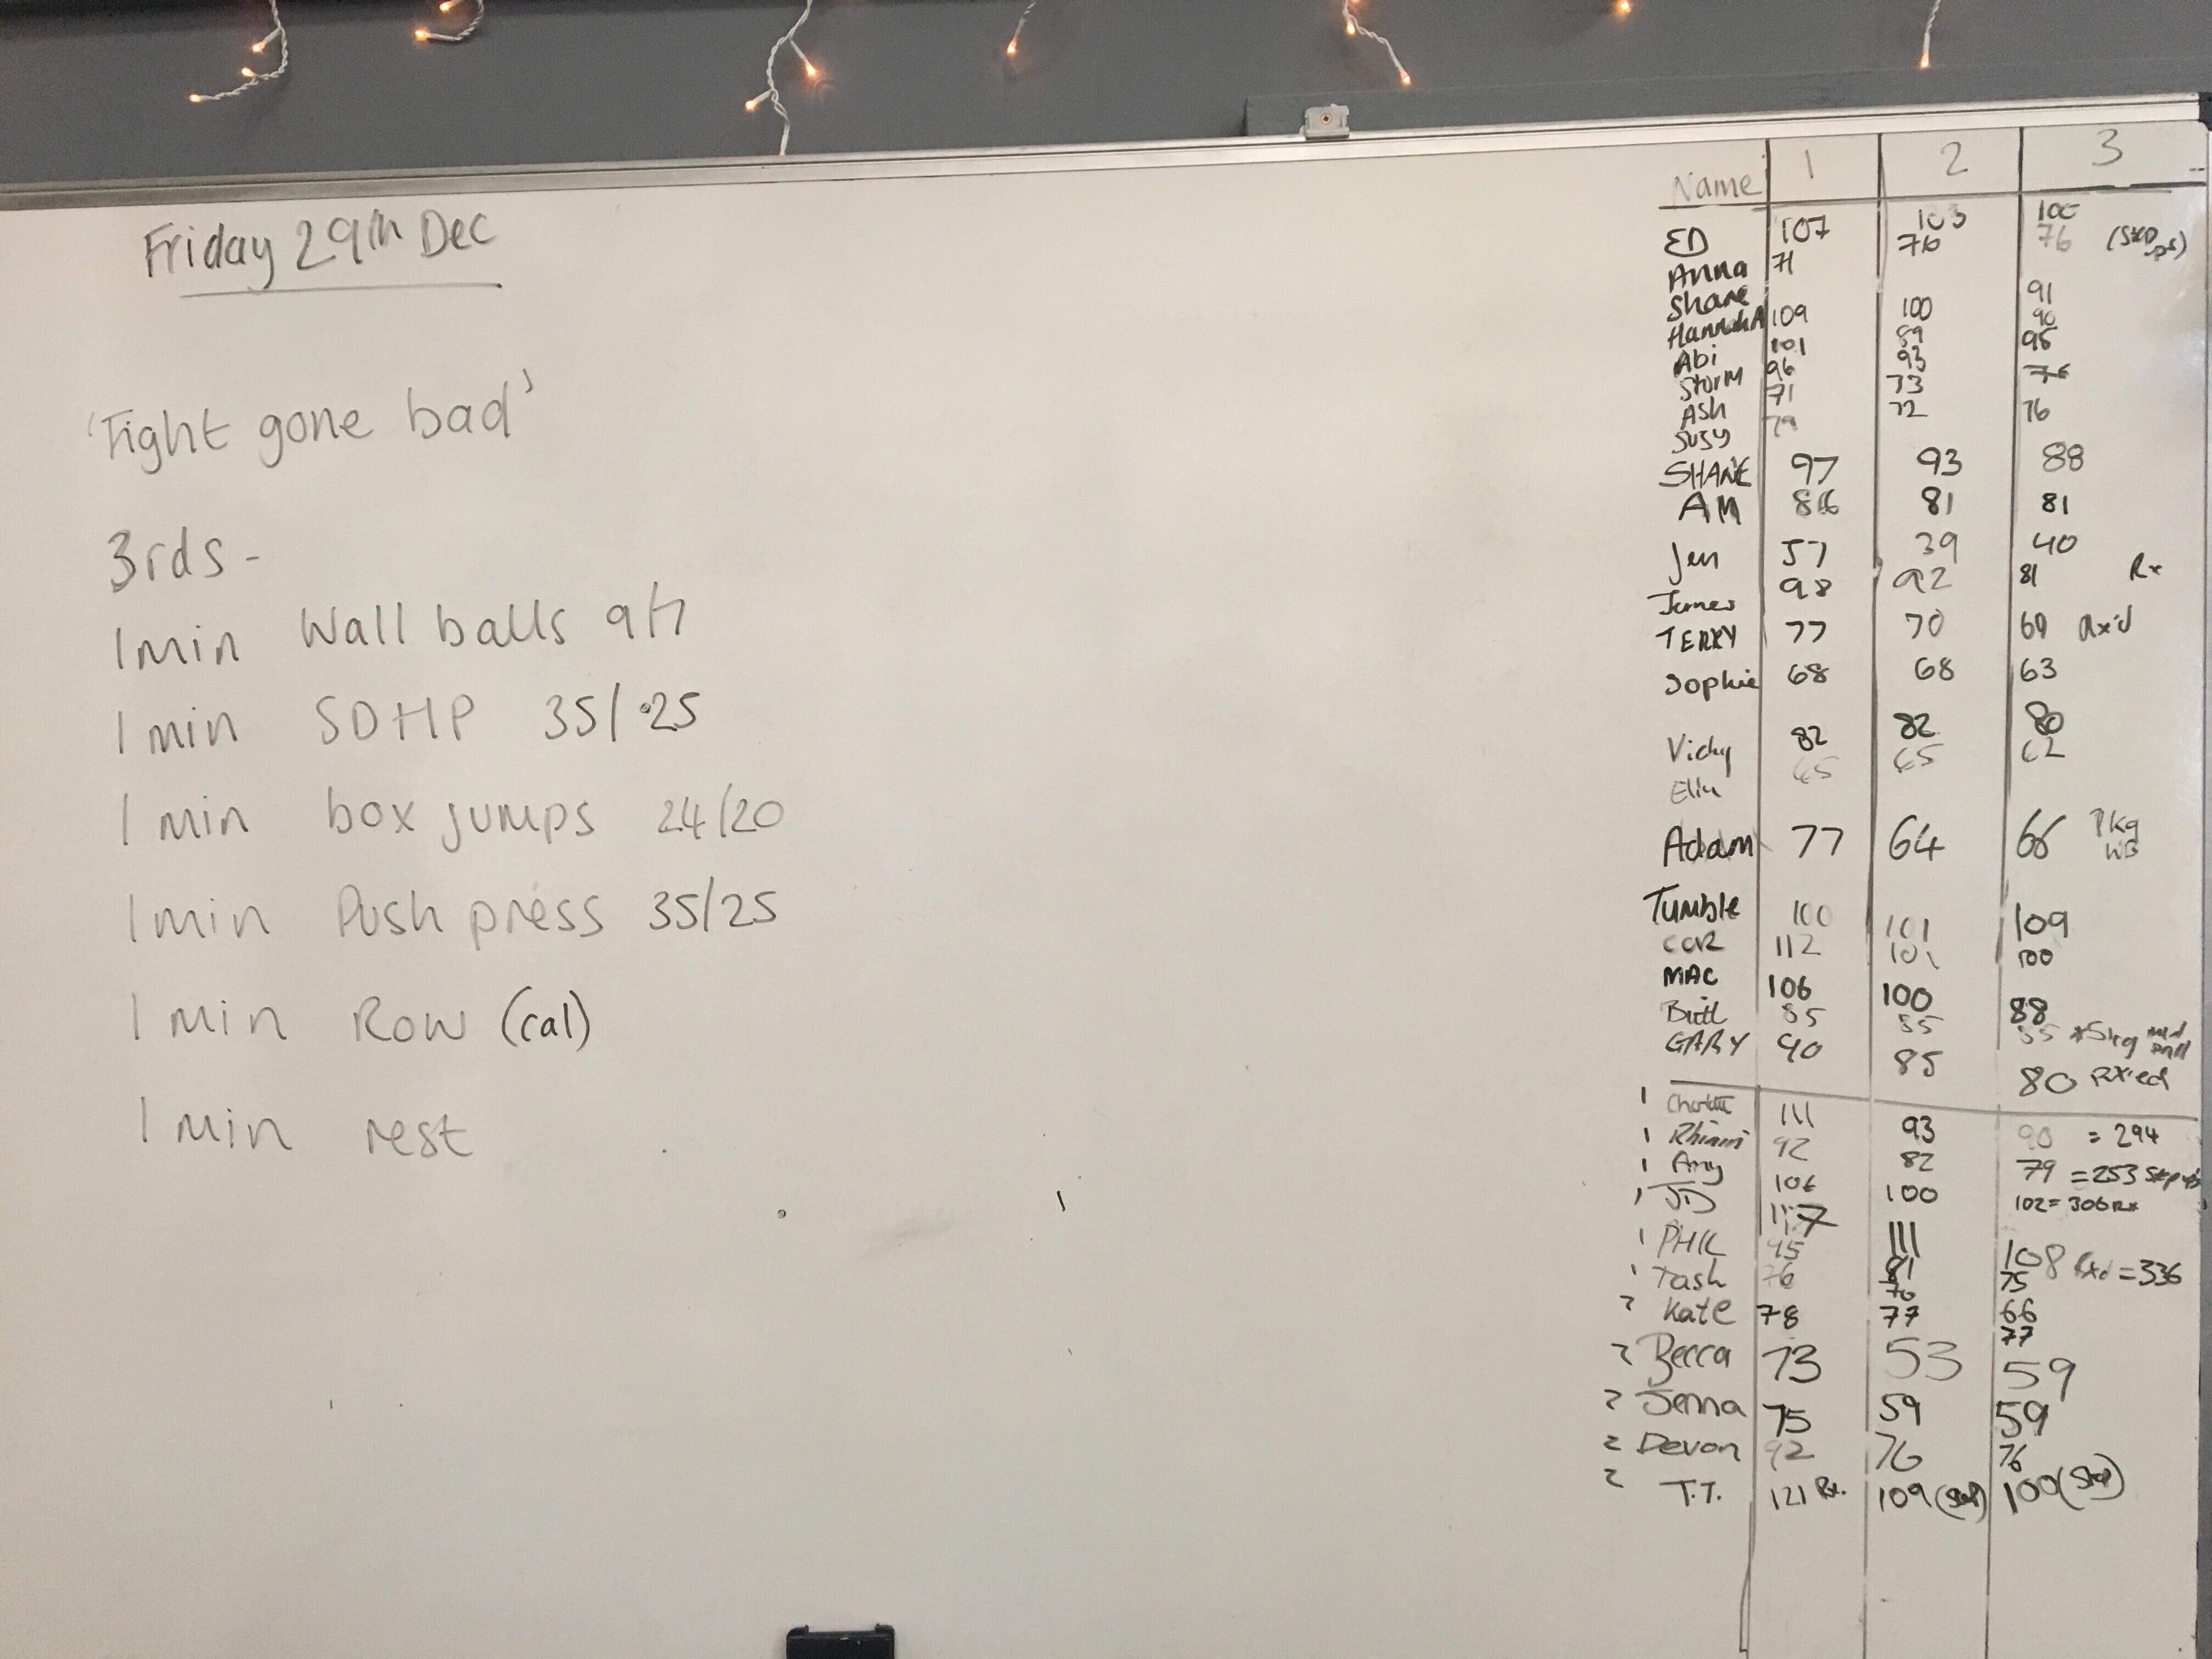 Friday 29th Dec
'Fight gone bad'
3rds -
1min Wall balls 9/7
1min SDHP 35/25
1min box jumps 24/20
1min Push press 35/25
1min Row (cal)
1min rest
Name 1 2 3
ED 107 103 100
Anna 71 76 76
Shane
HannahA 109 100 91
Abi 101 89 90
Storm 96 93 95
Ash 71 73 76
Susy 72 76
SHANE 97 93 88
AM 81 81
Jen 57 39 40
James 98 92 81 Rx
TERRY 77 70 69 Rx'd
Sophie 68 68 63
Vicky 82 82 80
65 65 62
Adam 77 64 66 7kg WB
Tumble 100 101 109
COR 112 101 100
MAC 106 100 88
85 85 85 *5kg med ball
GARY 90 85 80 RX'ed
1 111 93 90 = 294
1 92 82 79 = 253
1 Amy 106 100 102 = 306 Rx
1 JD 117 111 108 Rxd = 336
1 PHIL 95 81 75
1 Tash 76 70 66
2 Kate 78 77 77
2 Becca 73 53 59
2 Jenna 75 59 59
2 Devon 92 76 76
2 T.T. 121 Rx. 109 100